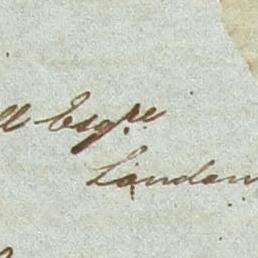 ll Esqre
London